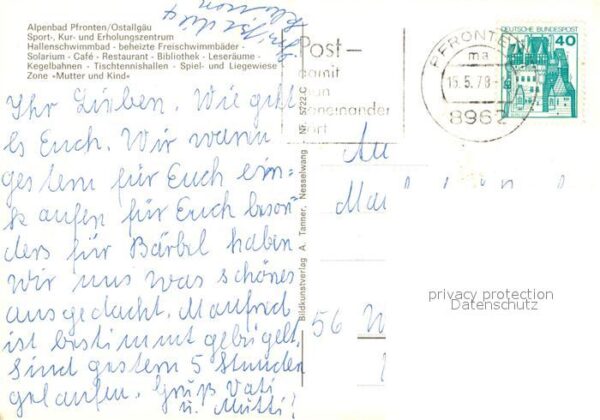 Alpenbad Pfronten/Ostallgäu
Sport-, Kur- und Erholungszentrum
Hallenschwimmbad - beheizte Freischwimmbäder -
Solarium - Café - Restaurant - Bibliothek - Leseräume -
Kegelbahnen - Tischtennishallen - Spiel- und Liegewiese
Zone »Mutter und Kind«
Ihr Lieben. Wie geht
es Euch. Wir waren
gestern für Euch ein=
kaufen für Euch beson
ders für Bärbel haben
wir uns was schönes
ausgedacht. Manfred
ist bestimmt gebügelt.
Sind gestern 5 Stunden
gelaufen. Gruß Vati
u. Mutti!
Post-
damit
nander
Bildkunstverlag A. Tanner, Nesselwang - Nr. 5722 C
PFRONTEN
ma
15.5.78
8962
DEUTSCHE BUNDESPOST
40
An
56 W
privacy protection
Datenschutz